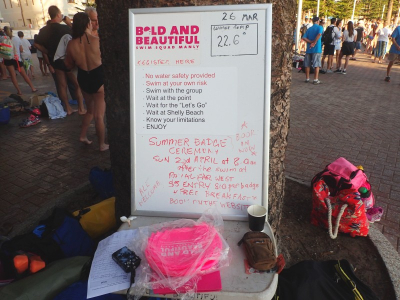 26 MAR
BOLD AND
BEAUTIFUL
SWIM SQUAD MANLY
SUMMER TEMP
22.6°
REGISTER HERE
- No water safety provided
- Swim at your own risk
- Swim with the group
- Wait at the point
- Wait for the "Let's Go"
- Wait at Shelly Beach
- Know your limitations
- ENJOY
SUMMER BADGE
CEREMONY
SUN 2nd APRIL at 8:00
After the swim at
FAR WEST
$5 ENTRY $10 per badge
+ FREE BREAKFAST
ALL
WELCOME